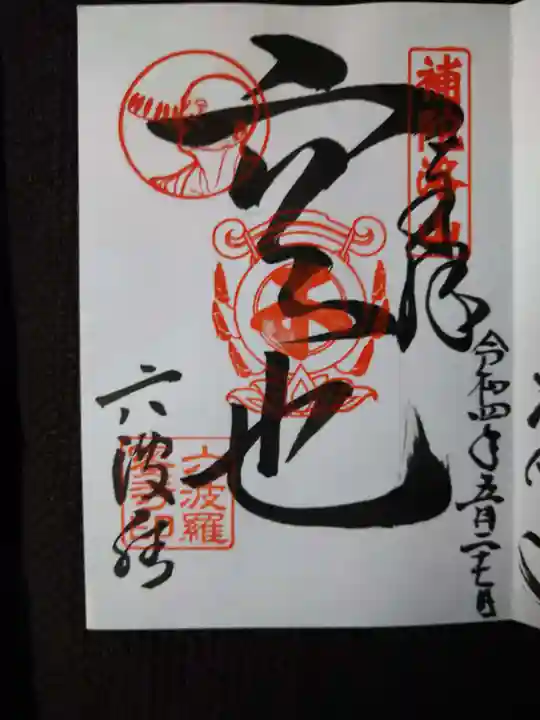 補陀洛山
奉拝
令和四年五月二十七日
空也
六波羅
六波羅
蜜寺印